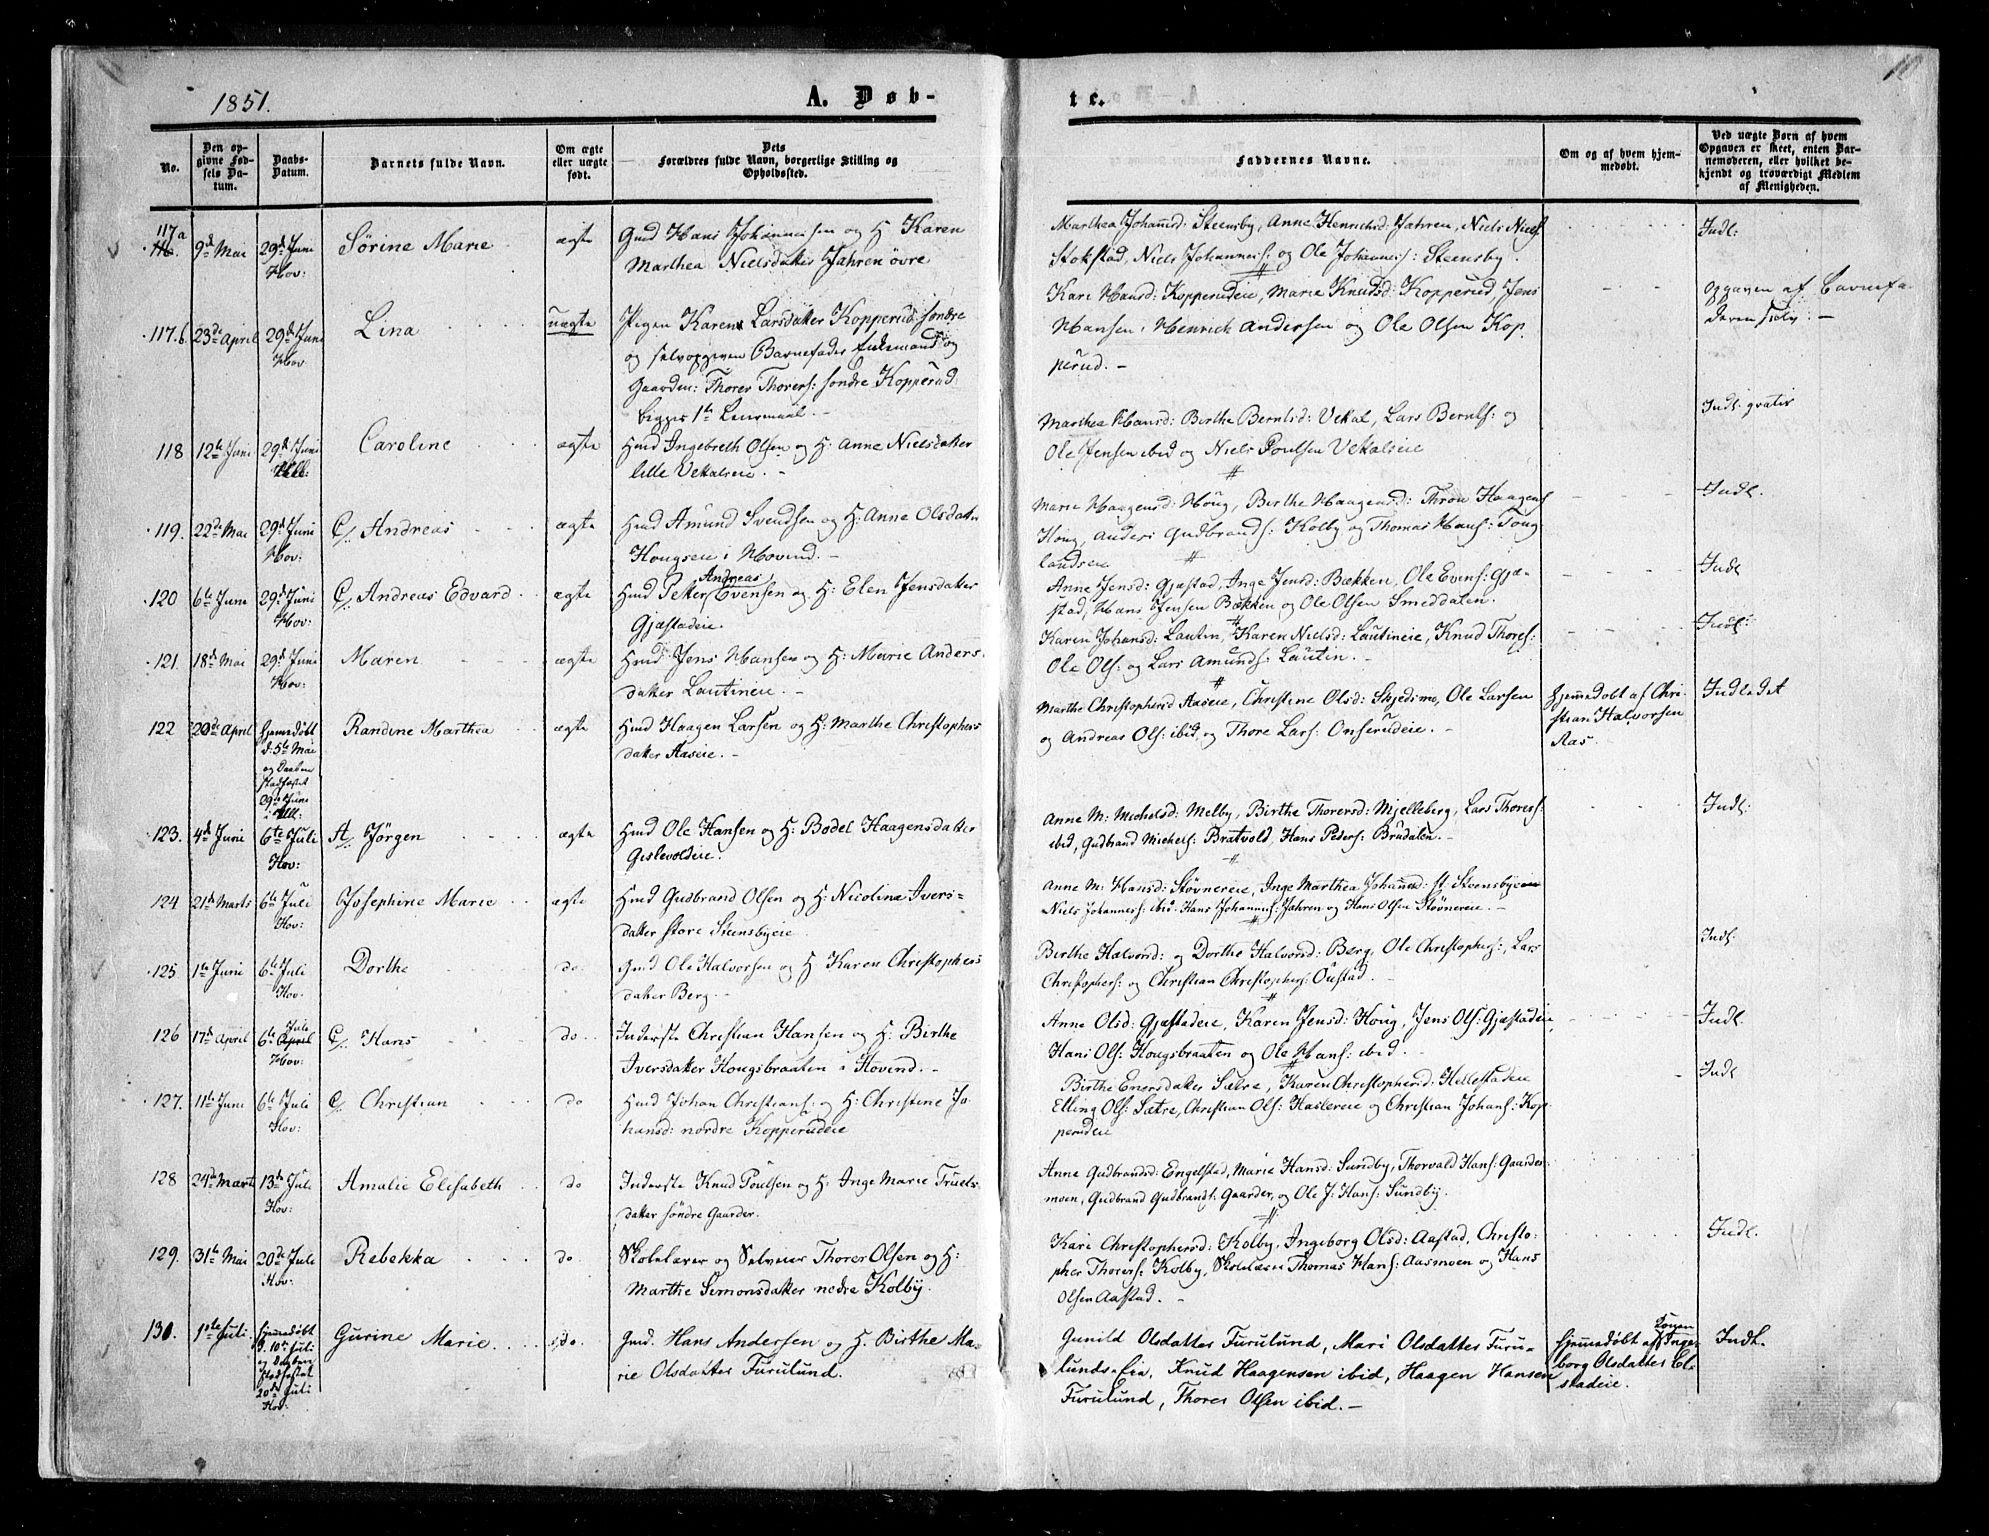 1851.
A. Døb-
te.
10
No.
Den op-
givne Fød-
sels Da-
tum.
Daabs-
Datum.
Barnets fulde Navn.
Om ægte
eller uægte
født.
Dets
Forældres fulde Navn, borgerlige Stilling og
Opholdssted.
Faddernes Navne.
Om og af hvem hjem-
medøbt.
Ved uægte Børn af hvem
Opgaven er skeet, enten Bar-
nemoderen, eller hvilket be-
kjendt og troværdigt Medlem
af Menigheden.
117a
9d Mai
29d Juni
Hov:
Sørine Marie
ægte
Gmd Hans Johannesen og H Karen
Marthea Nielsdatter Jahren övre
Marthea Johannsd: Steensby, Anne Henrichsd Jahren, Niels Niels
Stokstad, Niels Johannes: og Ole Johannes: Steensby.
Indl:
117.b
23de April
29d Juni
Hov
Lina
uægte
Pigen Karen Larsdatter Kopperud søndre
og selvopgiven Barnefader Enkemand og
Gaardm: Thorer Thorers: søndre Kopperud
begges 1te Leiermaal. -
Kari Hansd: Kopperudeie, Marie Knudsd: Kopperud, Jens
Hansen, Henrick Andersen og Ole Olsen Kop
perud. -
Opgaven af Barnefa-
deren selv: -
118
12te Juni
29d Juni
Caroline
ægte
Hmd Ingebreth Olsen og H: Anne Nielsdatter
lille Vekalseie. -
Marthea Hansd: Berthe Berntsd: Vekal, Lars Bernts: og
Ole Jensen ibid og Niels Poulsen Vekalseie
Indl. gratis
119.
22de Mai
29d Juni
Hov:
C/. Andreas
ægte
Hmd Amund Svendsen og H: Anne Olsdatter
Hougseie i Hovind. -
Marie Haagensd: Houg, Birthe Haagensd: Thron Haagens
Houg, Anders Gudbrands: Kolby og Thomas Hans: Toug
landseie
Indl.
120
6te Juni
29d Juni
Hov:
C/. Andreas Edvard
ægte
Hmd Peter Andreas Evensen og H: Elen Jensdatter
Gjæstadeie.
Anne Jensd: Gjæstad, Inge Jensd: Bækken, Ole Evens: Gjæ-
stad, Hans Jensen Bækken og Ole Olsen Smeddalen.
Indl
121.
18d Mai
29d Juni
Hov:
Maren
ægte
Hmd Jens Hansen og H: Marie Anders-
datter Lautineie. -
Karen Johansd: Lautin, Karen Nielsd: Lautineie, Knud Thores:
Ole Ols: og Lars Amunds: Lautin. -
Indl:
122
20de April
hjemmedøbt
d: 5te Mai
og Daaben
stadfæstet
29de Juni
Randine Marthea
ægte
Hmd Haagen Larsen og H: Marthe Christophers
datter Aaseie. -
Marthe Christophersd Aaseie, Christine Olsd: Skjedsmo, Ole Larsen
og Andreas Ols: ibid og Thore Lars: Onserudeie. -
hjemmedøbt af Chri-
stian Halvorsen
Aas. -
Indledet
123.
4d Juni
6te Juli
Hov:
A/. Jørgen
ægte
Hmd Ole Hansen og H: Bodel Haagensdatter
Gislevoldeie.
Anne M: Michelsd: Melby, Birthe Thorersd: Mjelleberg, Lars Thores:
ibid, Gudbrand Michels: Bratvold, Hans Peders: Brudalen. -
Indl:
124
21de Marts
6te Juli
Hov:
Josephine Marie
ægte
Hmd Gudbrand Olsen og H: Nicoline Ivers-
datter store Steensbyeie
Anne M: Hansd: Støvnereie, Inge Marthea Johannsd: st. Steensbyeie
Niels Johannes: ibid. Hans Johannes: Jahren og Hans Olsen Støvnereie. -
125.
1te Juni
6te Juli
Hov.
Dorthe
do.
Gmd Ole Halvorsen og H Karen Christophers
datter Berg. -
Birthe Halvorsd: og Dorthe Halvorsd: Berg, Ole Christophers:, Lars
Christophers: og Christian Christophers: Oustad. -
Indl:
126
17de April
6te Juli
Hov:
C/. Hans
do.
Inderste Christian Hansen og H: Birthe
Iversdatter Hougsbraaten i Hovind. -
Anne Olsd: Gjæstadeie, Karen Jensd: Houg, Jens Ols: Gjæstadeie,
Hans Ols: Hougsbraaten og Ole Hans: ibid. -
Indl.
127.
11te Juni
6te Juli
Hov:
C/. Christian
do
Hmd Johan Christians: og H: Christine Jo-
hansd: nordre Kopperudeie
Birthe Enersdatter Sætre, Karen Christophersd: Hellestadeie
Elling Ols: Sætre, Christian Ols: Haslereie og Christian Johans: Kop-
perudeie
Indl
128
24de Marts
13de Juli
Hov:
Amalie Elisabeth
do
Inderste Knud Poulsen og H: Inge Marie Truels-
datter søndre Gaarder.
Anne Gudbrandsd: Engelstad, Marie Hansd: Sundby, Thorvald Hans: Gaarder-
moen, Gudbrand Gudbrands: Gaarder, og Ole J: Hans: Sundby.
129.
31te Mai
20de Juli
Hov:
Rebekka
do
Skolelærer og Selveier Thorer Olsen og H:
Marthe Simonsdatter nedre Kolby.
Kari Christophersd: Kolby, Ingeborg Olsd: Aastad, Christo-
pher Thorers: Kolby, Skolelærer Thomas Hans: Aasmoen og Hans
Olsen Aastad. -
Indl.
130.
1ste Juli
hjemmedøbt
d. 10de Juli
og Daaben
stadfæstet
20de Juli
Hov:
Gurine Marie
do.
Gmd. Hans Andersen og H. Birthe Ma-
rie Olsdatter Furulund.
Gunild Olsdatter Furulund, Mari Olsdatter Furu-
lunds-eie, Knud Haagensen ibid, Haagen Hansen
Furulund, Thorer Olsen ibid. -
hjemmedøbt af Inge-
borg Olsdatter El-
stadeie.
Indl.